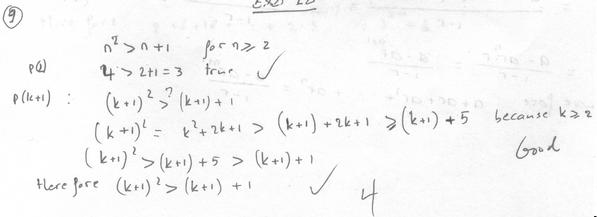 9
n² > n+1 for n ≥ 2
p(2) 4 > 2+1 = 3 true ✓
p(k+1) : (k+1)² >? (k+1)+1
(k+1)² = k²+2k+1 > (k+1)+2k+1 ≥ (k+1)+5 because k ≥ 2
(k+1)² > (k+1)+5 > (k+1)+1 Good
Therefore (k+1)² > (k+1)+1 ✓ 4